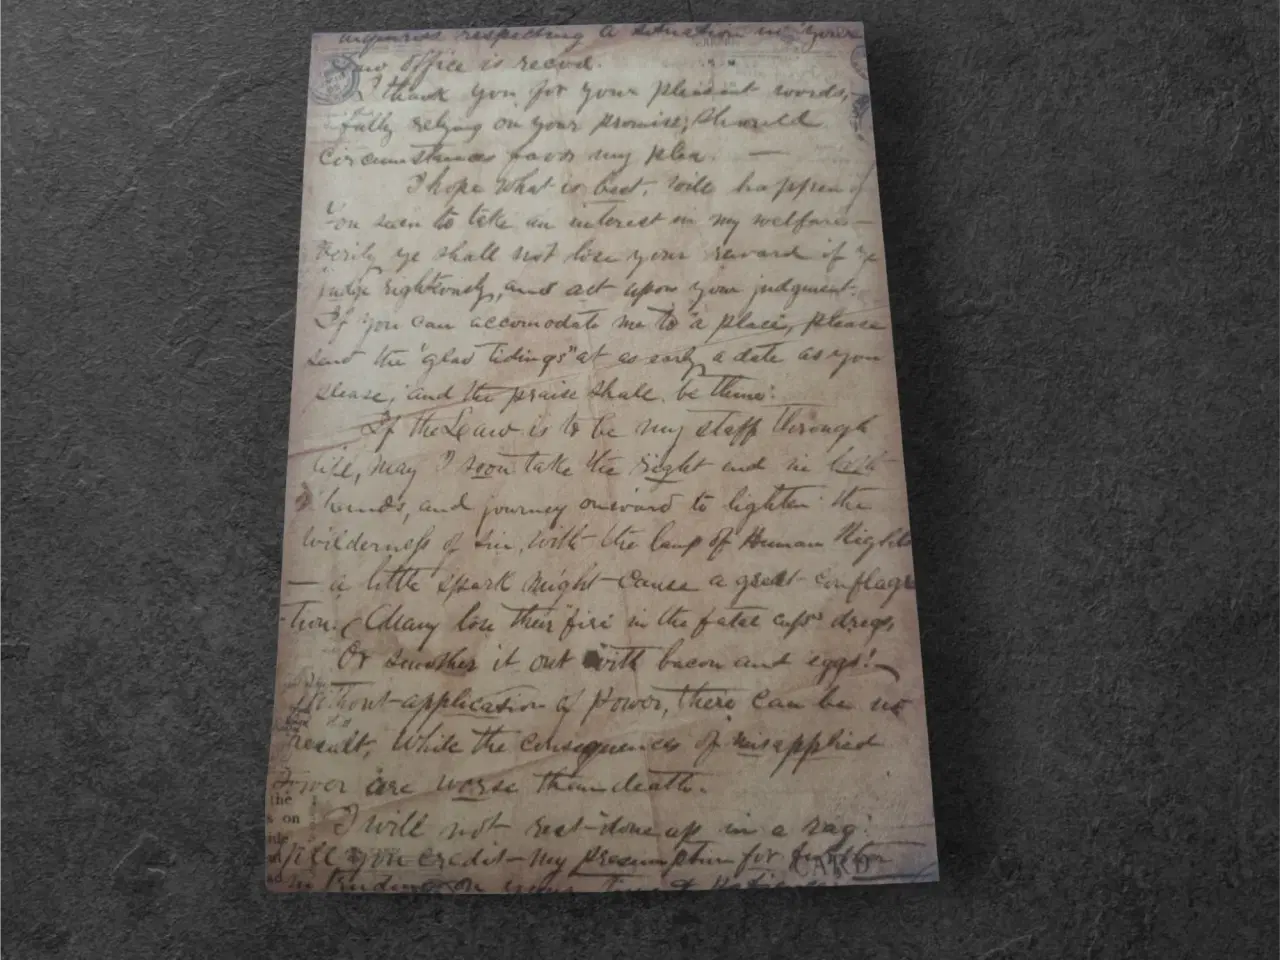 inquiries respecting a situation in your
Law office is recevd.
I thank you for your pleasant words,
fully relying on your promise, should
circumstances favor my plea. —
I hope what is best, will happen
You seem to take an interest in my welfare —
Verily ye shall not lose your reward if ye
judge righteously, and act upon your judgment.
If you can accomodate me to a place, please
send the "glad tidings" at as early a date as you
please, and the praise shall be thine.
If the Law is to be my staff through
life, may I soon take the right end in both
hands, and journey onward to lighten the
wilderness of sin, with the lamp of Human Rights
— a little spark might cause a great conflagra
tion. (Many lose their fire in the fatal cups' dregs,
Or smother it out with bacon and eggs!—
Without application of Power, there can be no
result, while the consequences of misapplied
Power are worse than death.
I will not rest "done up in a rag"
till you credit my presumption for
on your
the
s on
CARD